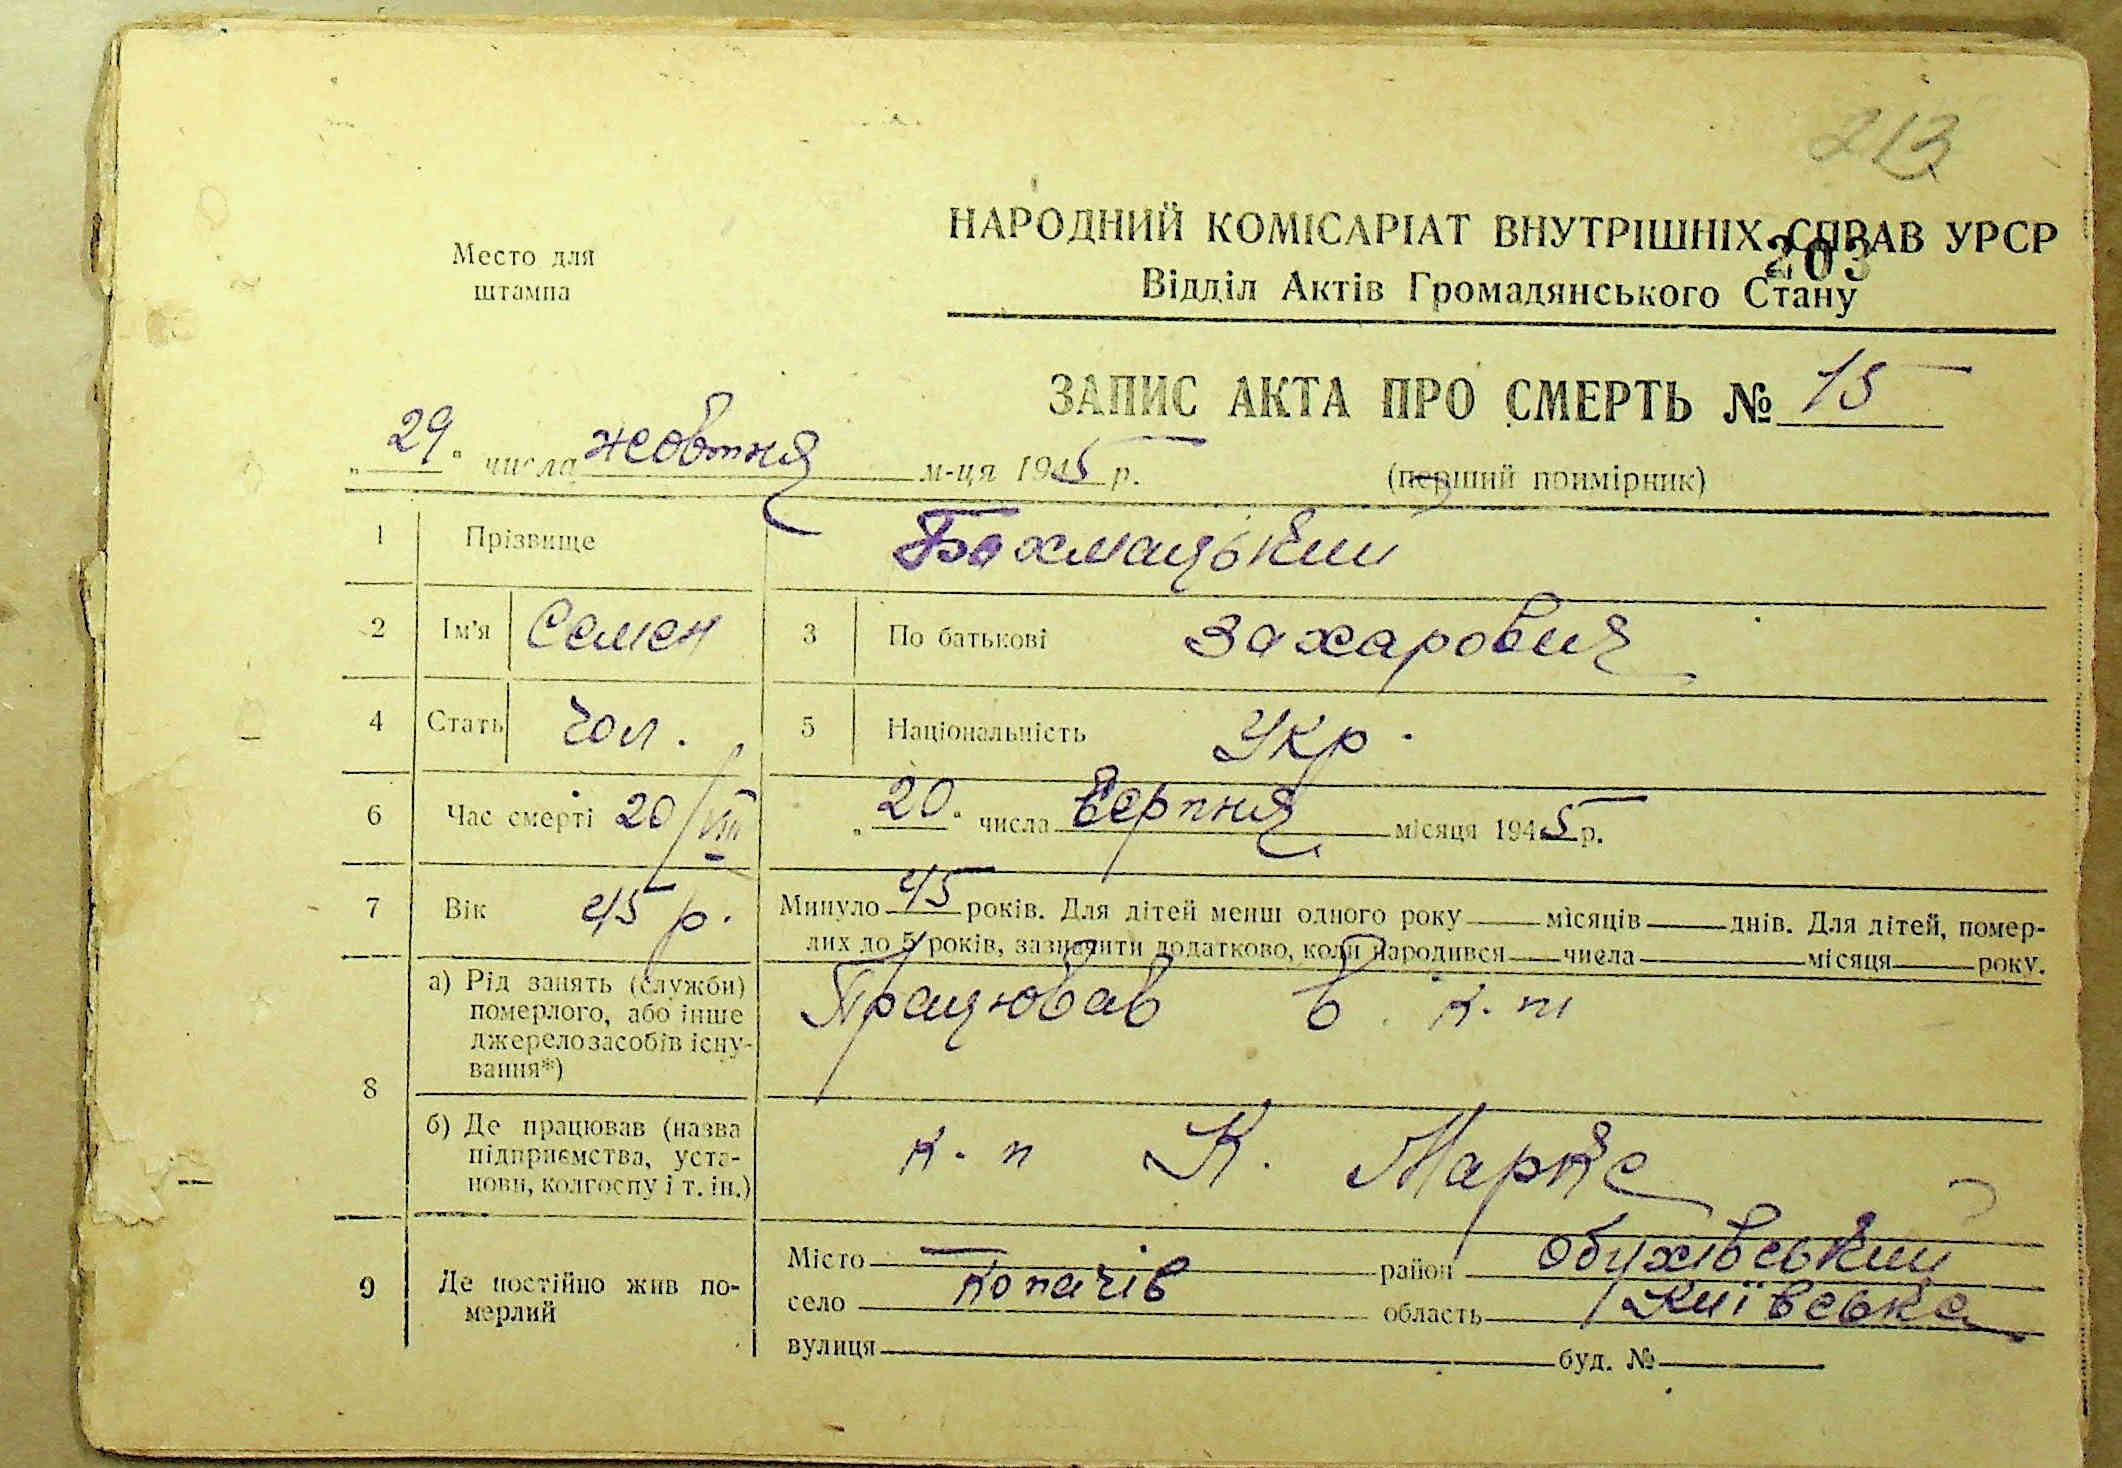 213
НАРОДНИЙ КОМІСАРІАТ ВНУТРІШНІХ СПРАВ УРСР
203
Место для
штампа
Відділ Актів Громадянського Стану
ЗАПИС АКТА ПРО СМЕРТЬ № 15
„29“ числа жовтня м-ця 1945 р.
(перший примірник)
1 Прізвище Бохмацький
2 Ім'я Семен 3 По батькові Захарович
4 Стать чол. 5 Національність Укр.
6 Час смерті 20/VIII „20“ числа Серпня місяця 1945 р.
7 Вік 45 р. Минуло 45 років. Для дітей менш одного року місяців днів. Для дітей, помер-
лих до 5 років, зазначити додатково, коли народився числа місяця року.
8
а) Рід занять (служби)
померлого, або інше
джерело засобів існу-
вання*)
Працював в к. п
б) Де працював (назва
підприємства, уста-
нови, колгоспу і т. ін.)
к. п К. Маркса
9 Де постійно жив по-
мерлий
Місто — район Обухівський
село Копачів область Київська
вулиця буд. №